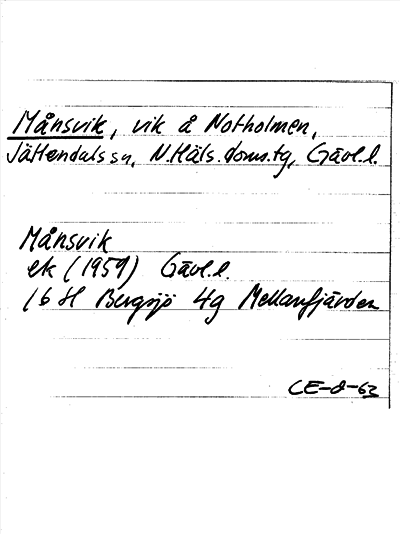 Månsvik, vik å Notholmen,
Jättendals sn, N.Häls. doms.tg, Gävl.l.
Månsvik
ek (1959) Gävl.l.
16 H Bergsjö 4g Mellanfjärden
CE-0-62